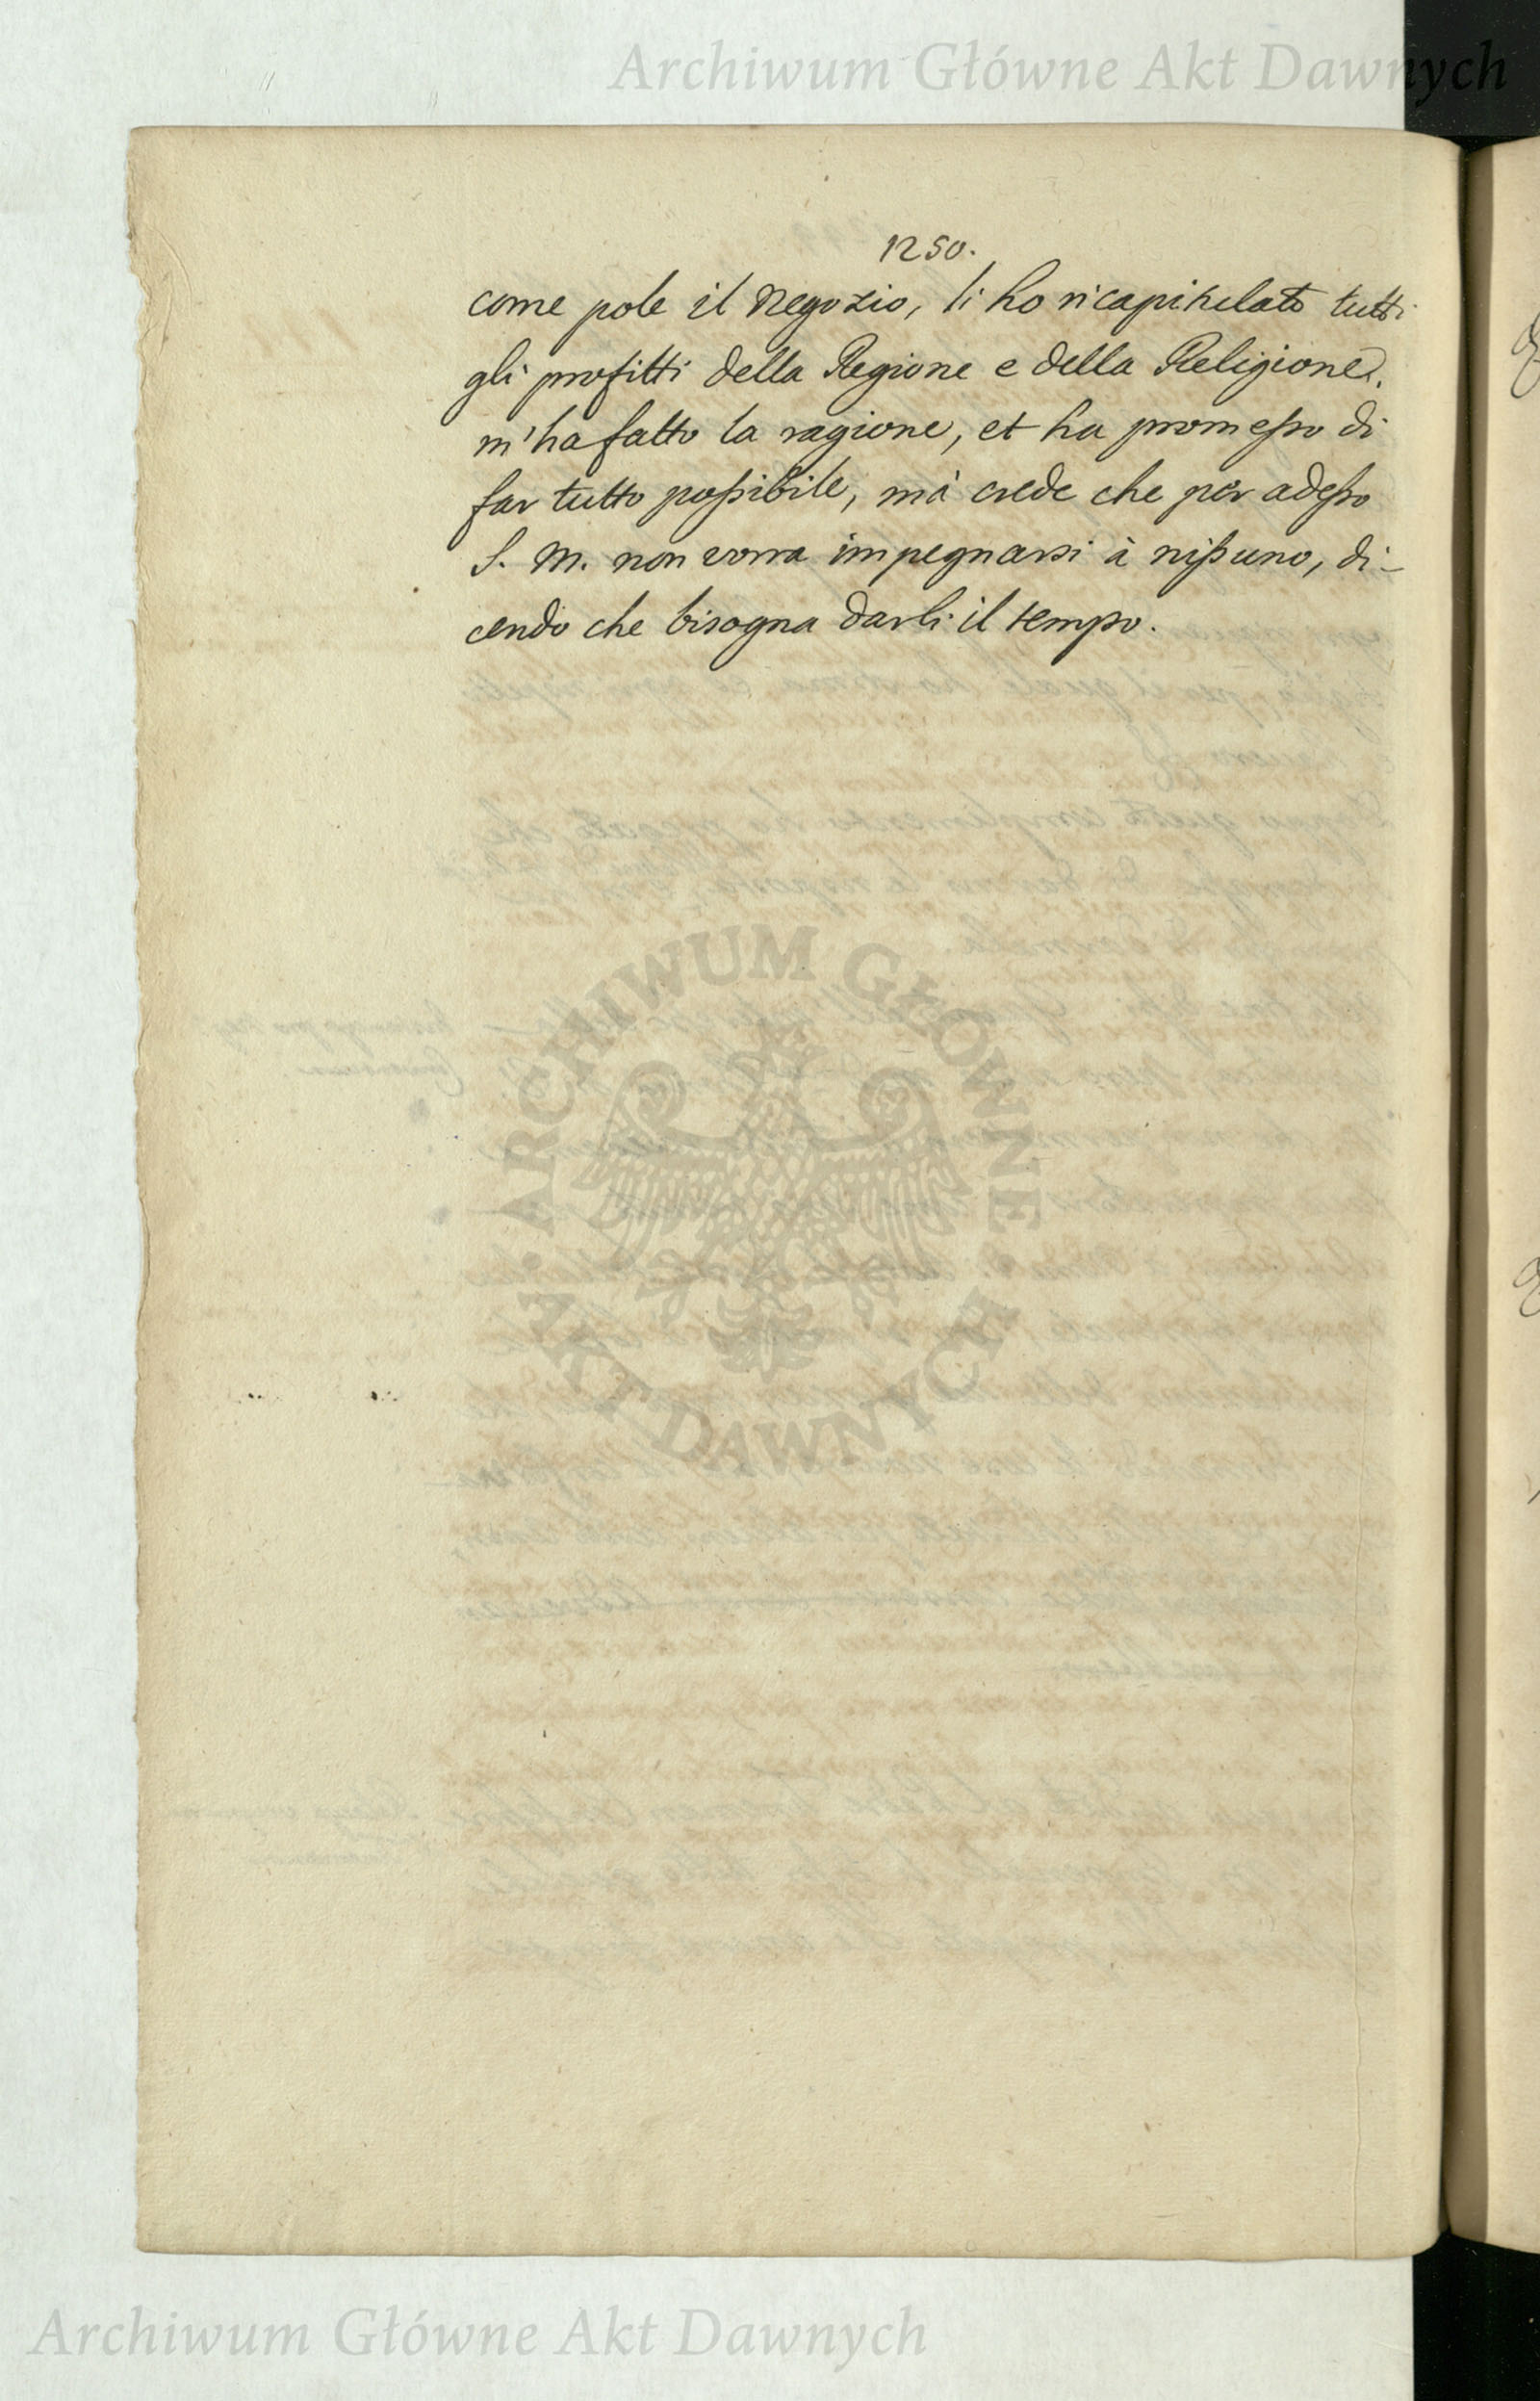 Archiwum Główne Akt Dawnych
1250.
come pole il Negozio, li ho ricapitulato tutti
gli profitti della Regione e della Religione,
m'ha fatto la ragione, et ha promesso di
far tutto possibile, mà crede che per adesso
S. M. non vorra impegnarsi à nissuno, di-
cendo che bisogna darli il tempo.
ARCHIWUM GŁÓWNE
AKT DAWNYCH
Archiwum Główne Akt Dawnych